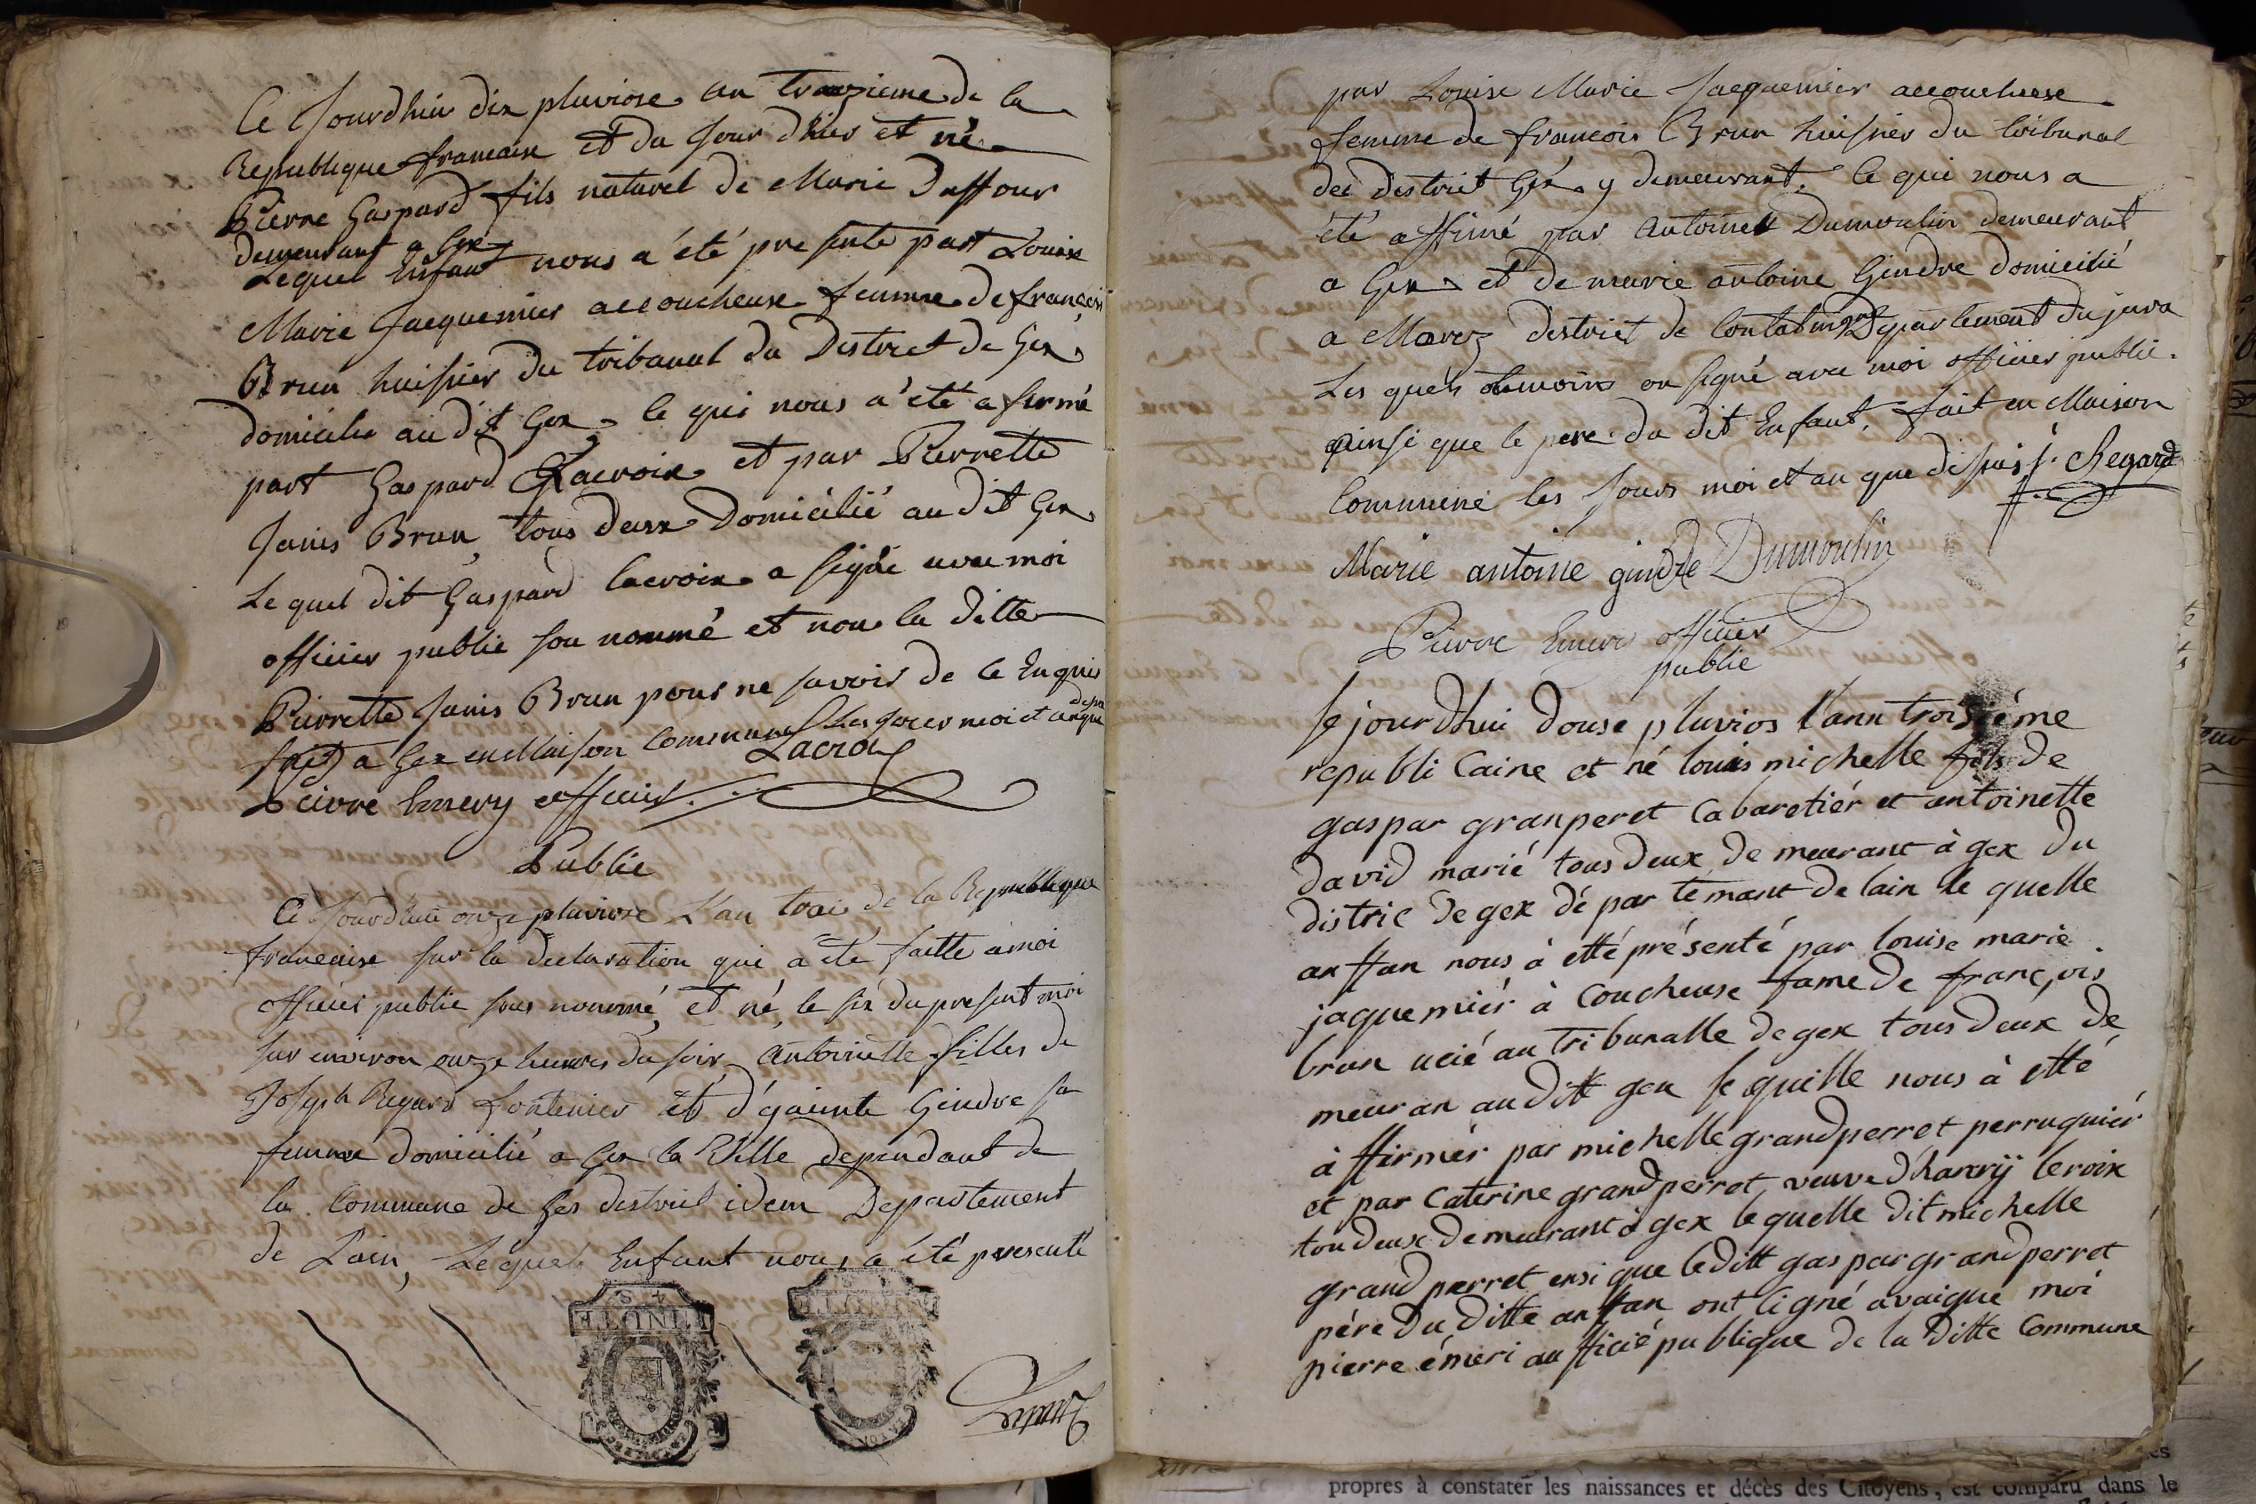 Ce Jourdhui dix pluviose an troizieme de la
Republique francaise et du Jour dhier et né
Pierre Gaspard fils naturel de Marie Duffour
demeurant a Gex
Lequel Enfant nous a été presenté part Louise
Marie Jacquemier accoucheuse femme de francois
Brun huissier du tribunal du District de Gex
domicilié au dit Gex, ce qui nous a été afirmé
part Gaspard Lacroix et par Pierrette
Janis Brun, tous deux Domicilié au dit Gex
Le quel dit Gaspard lacroix a signé avec moi
officier public sou nommé et non la ditte
Pierrette Janis Brun pour ne savoir de ce Enquis
fait a Gex en Maison Commune Les Jour moi et an que dessu
Lacroix
Pierre Emery officier
Public
Ce Jourdhui onze pluviose L'an trois de la Republique
francaise sur la declaration qui a été faitte a moi
officier public sous nommé, et né, le six du present moi
sur environ onze heures du soir, Antoinette filles de
Joseph Regard fontenier et d'jacinte Gindre sa
femme domicilié a Gex la Ville dependant de
la Commune de Gex district idem Departement
de Lain, Lequel Enfant nous a été presenté
MINUTE
par Louise Marie Jacquemier accoucheuse
femme de francois Brun huissier du tribunal
der district Gex y demeurant. Ce qui nous a
été affirmé par Antoine Dumoulin demeurant
a Gex et de marie antoine Gindre domicilié
a Morez district de Departement du jura
Les quels temoins on signé avec moi officier public.
ainsi que le pere du dit Enfant, fait en Maison
Commune les Jours moi et an que dessus J. Regard
Marie antoine gindre Dumoulin
Pierre Emeri officier
public
se jourdhui douse pluvios l'ann troisiéme
republi Caine et né louis michelle fils de
gaspar granperet Cabaretiér et antoinette
david marié tous deux de meurant à gex du
distric de gex dé par témant de lain le quelle
anffan nous à etté présenté par louise marie
jaquemiér à Coucheuse fame de françois
brun ucié au tribunalle de gex tous deux dé
meuran au ditt gex se quille nous à etté
à ffirmér par michelle grandperret perruquiér
et par Caterine grandperret veuve d'hanrÿ leroix
tou deux demeurant à gex le quelle dit michelle
grand perret ensi que le ditt gaspar grandperret
pére du ditte anffan ont signé avaique moi
pierre émeri au fficié publique de la ditte Commune
propres à constater les naissances et décès des Citoyens, est comparu dans le